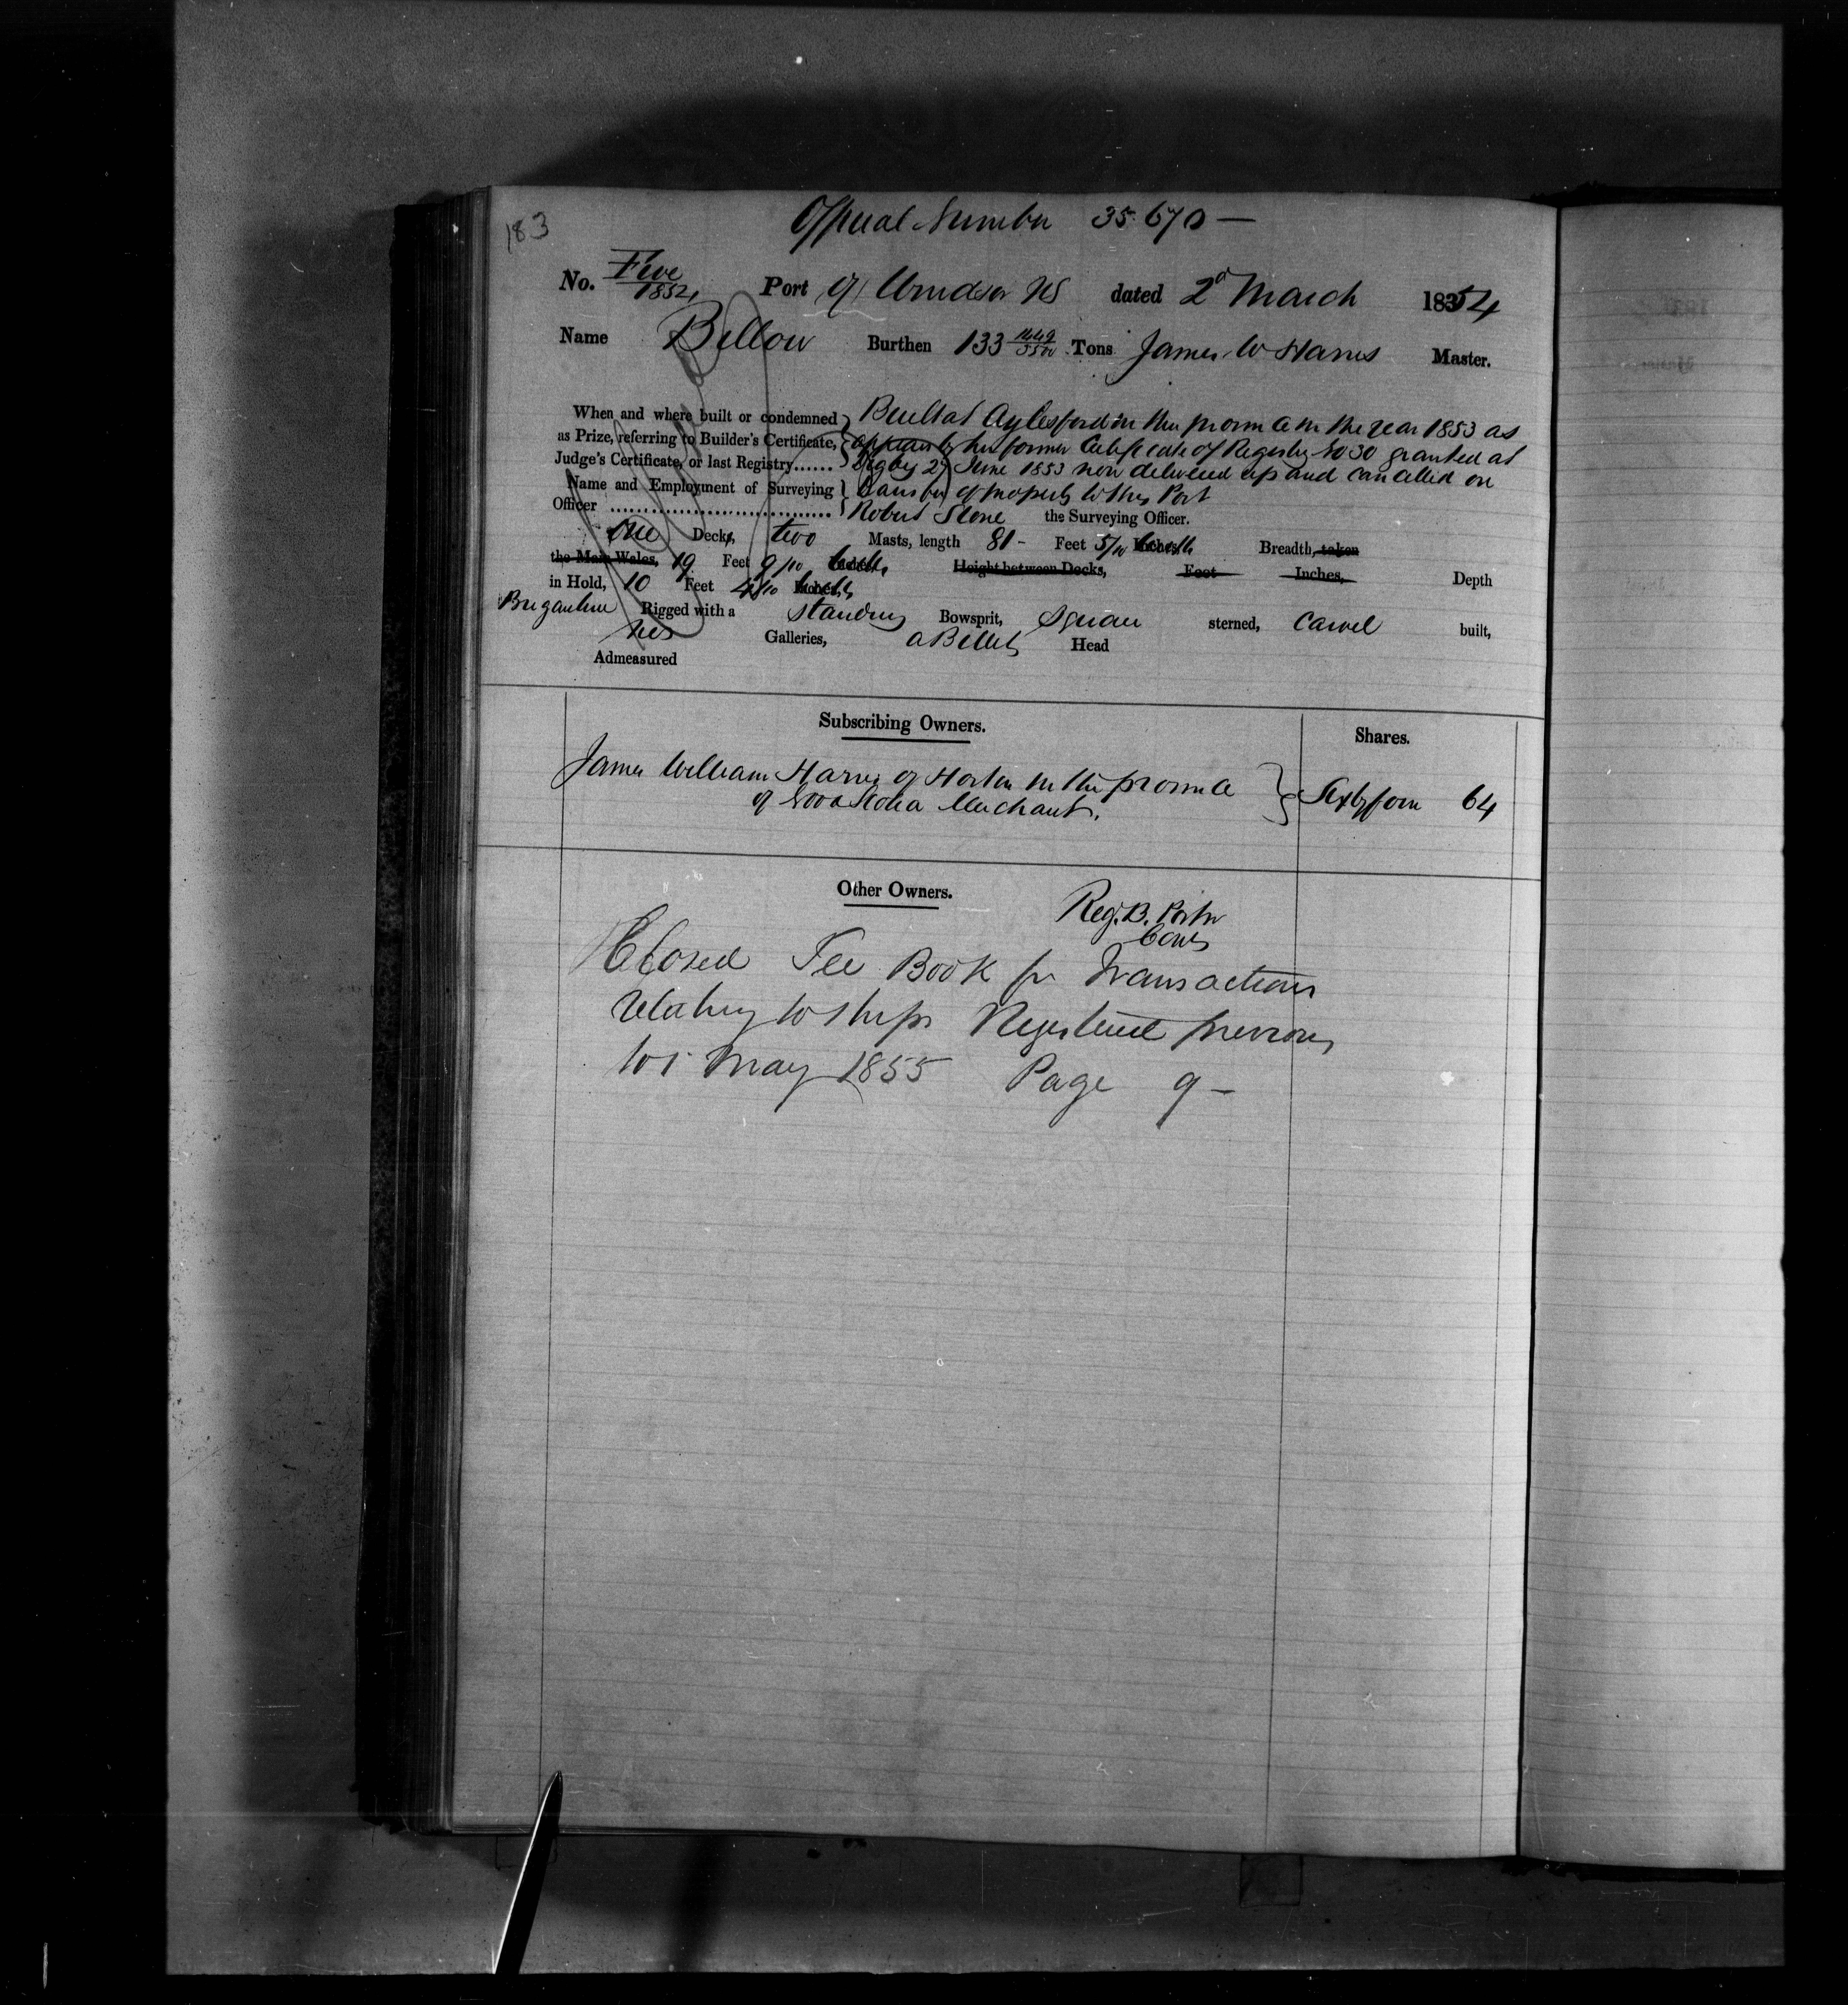 183
Official Number 35.670 —
No. Five 1854 Port of Windsor NS dated 2d March 1854
Name Billow Burthen 133 1449/3500 Tons James W Harris Master.
When and where built or condemned Built at Aylesford in this province in the year 1853 as
as Prize, referring to Builder's Certificate, appears by her former Certificate of Registry No 30 granted at
Judge's Certificate, or last Registry...... Digby 27 June 1853 now delivered up and cancelled on
Name and Employment of Surveying transfer of property to this Port
Officer .................................. Robert Stone the Surveying Officer.
One Decks, two Masts, length 81 - Feet 5/10 Inches, Breadth, taken
the Main Wales, 19 Feet 9/10 Height between Decks, Feet Inches, Depth
in Hold, 10 Feet 4/10
Brigantine Rigged with a standing Bowsprit, Square sterned, Carvel built,
no Galleries, a Billet Head
Admeasured
Subscribing Owners. Shares.
James William Harris of Horton in the province
of Nova Scotia Merchant. Sixty four 64
Other Owners.
Reg. B. Porter
Closed See Book for Transactions
relating to Ships Registered previous
to 1 May 1855 Page 9 —